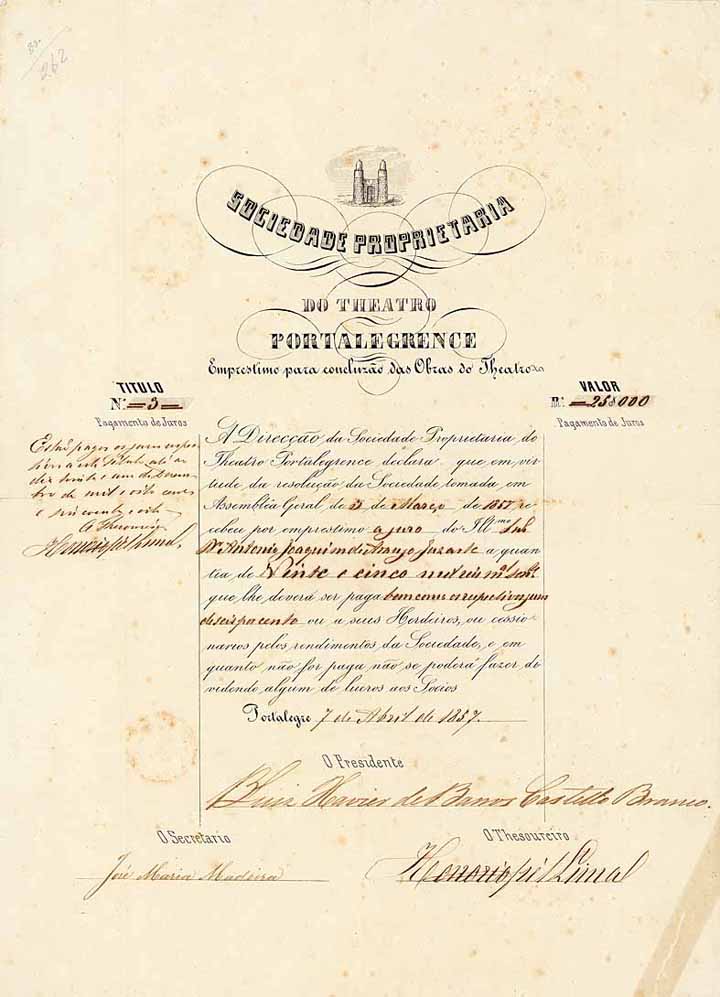 262
SOCIEDADE PROPRIETARIA
DO THEATRO
PORTALEGRENCE
Emprestimo para concluzão das Obras do Theatro
TITULO
N.º 3
Pagamento de Juros
VALOR
R.s 25$000
Pagamento de Juros
Estão pagos os juros
este Titulo até
de mil e oito centos
e oito
O Thesoureiro
A Direcção da Sociedade Proprietaria do
Theatro Portalegrence declara que em vir
tude da resolução da Sociedade tomada em
Assemblea Geral de 3 de Março de 1857 re
cebeu por emprestimo a juro do Ill.mo Snr.
D.r Antonio Joaquim de Araujo Juzarte a quan
tia de Vinte e cinco mil reis
que lhe deverá ser paga bem como o respectivo juro
de seis por cento ou a seus Herdeiros, ou cessio
narios pelos rendimentos da Sociedade, e em
quanto não for paga não se poderá fazer di
vedendo algum de lucros aos Socios
Portalegre 7 de Abril de 1857.
O Presidente
Luiz Xavier de Barros Castello Branco.
O Secretario
O Thesoureiro
José Maria Madeira